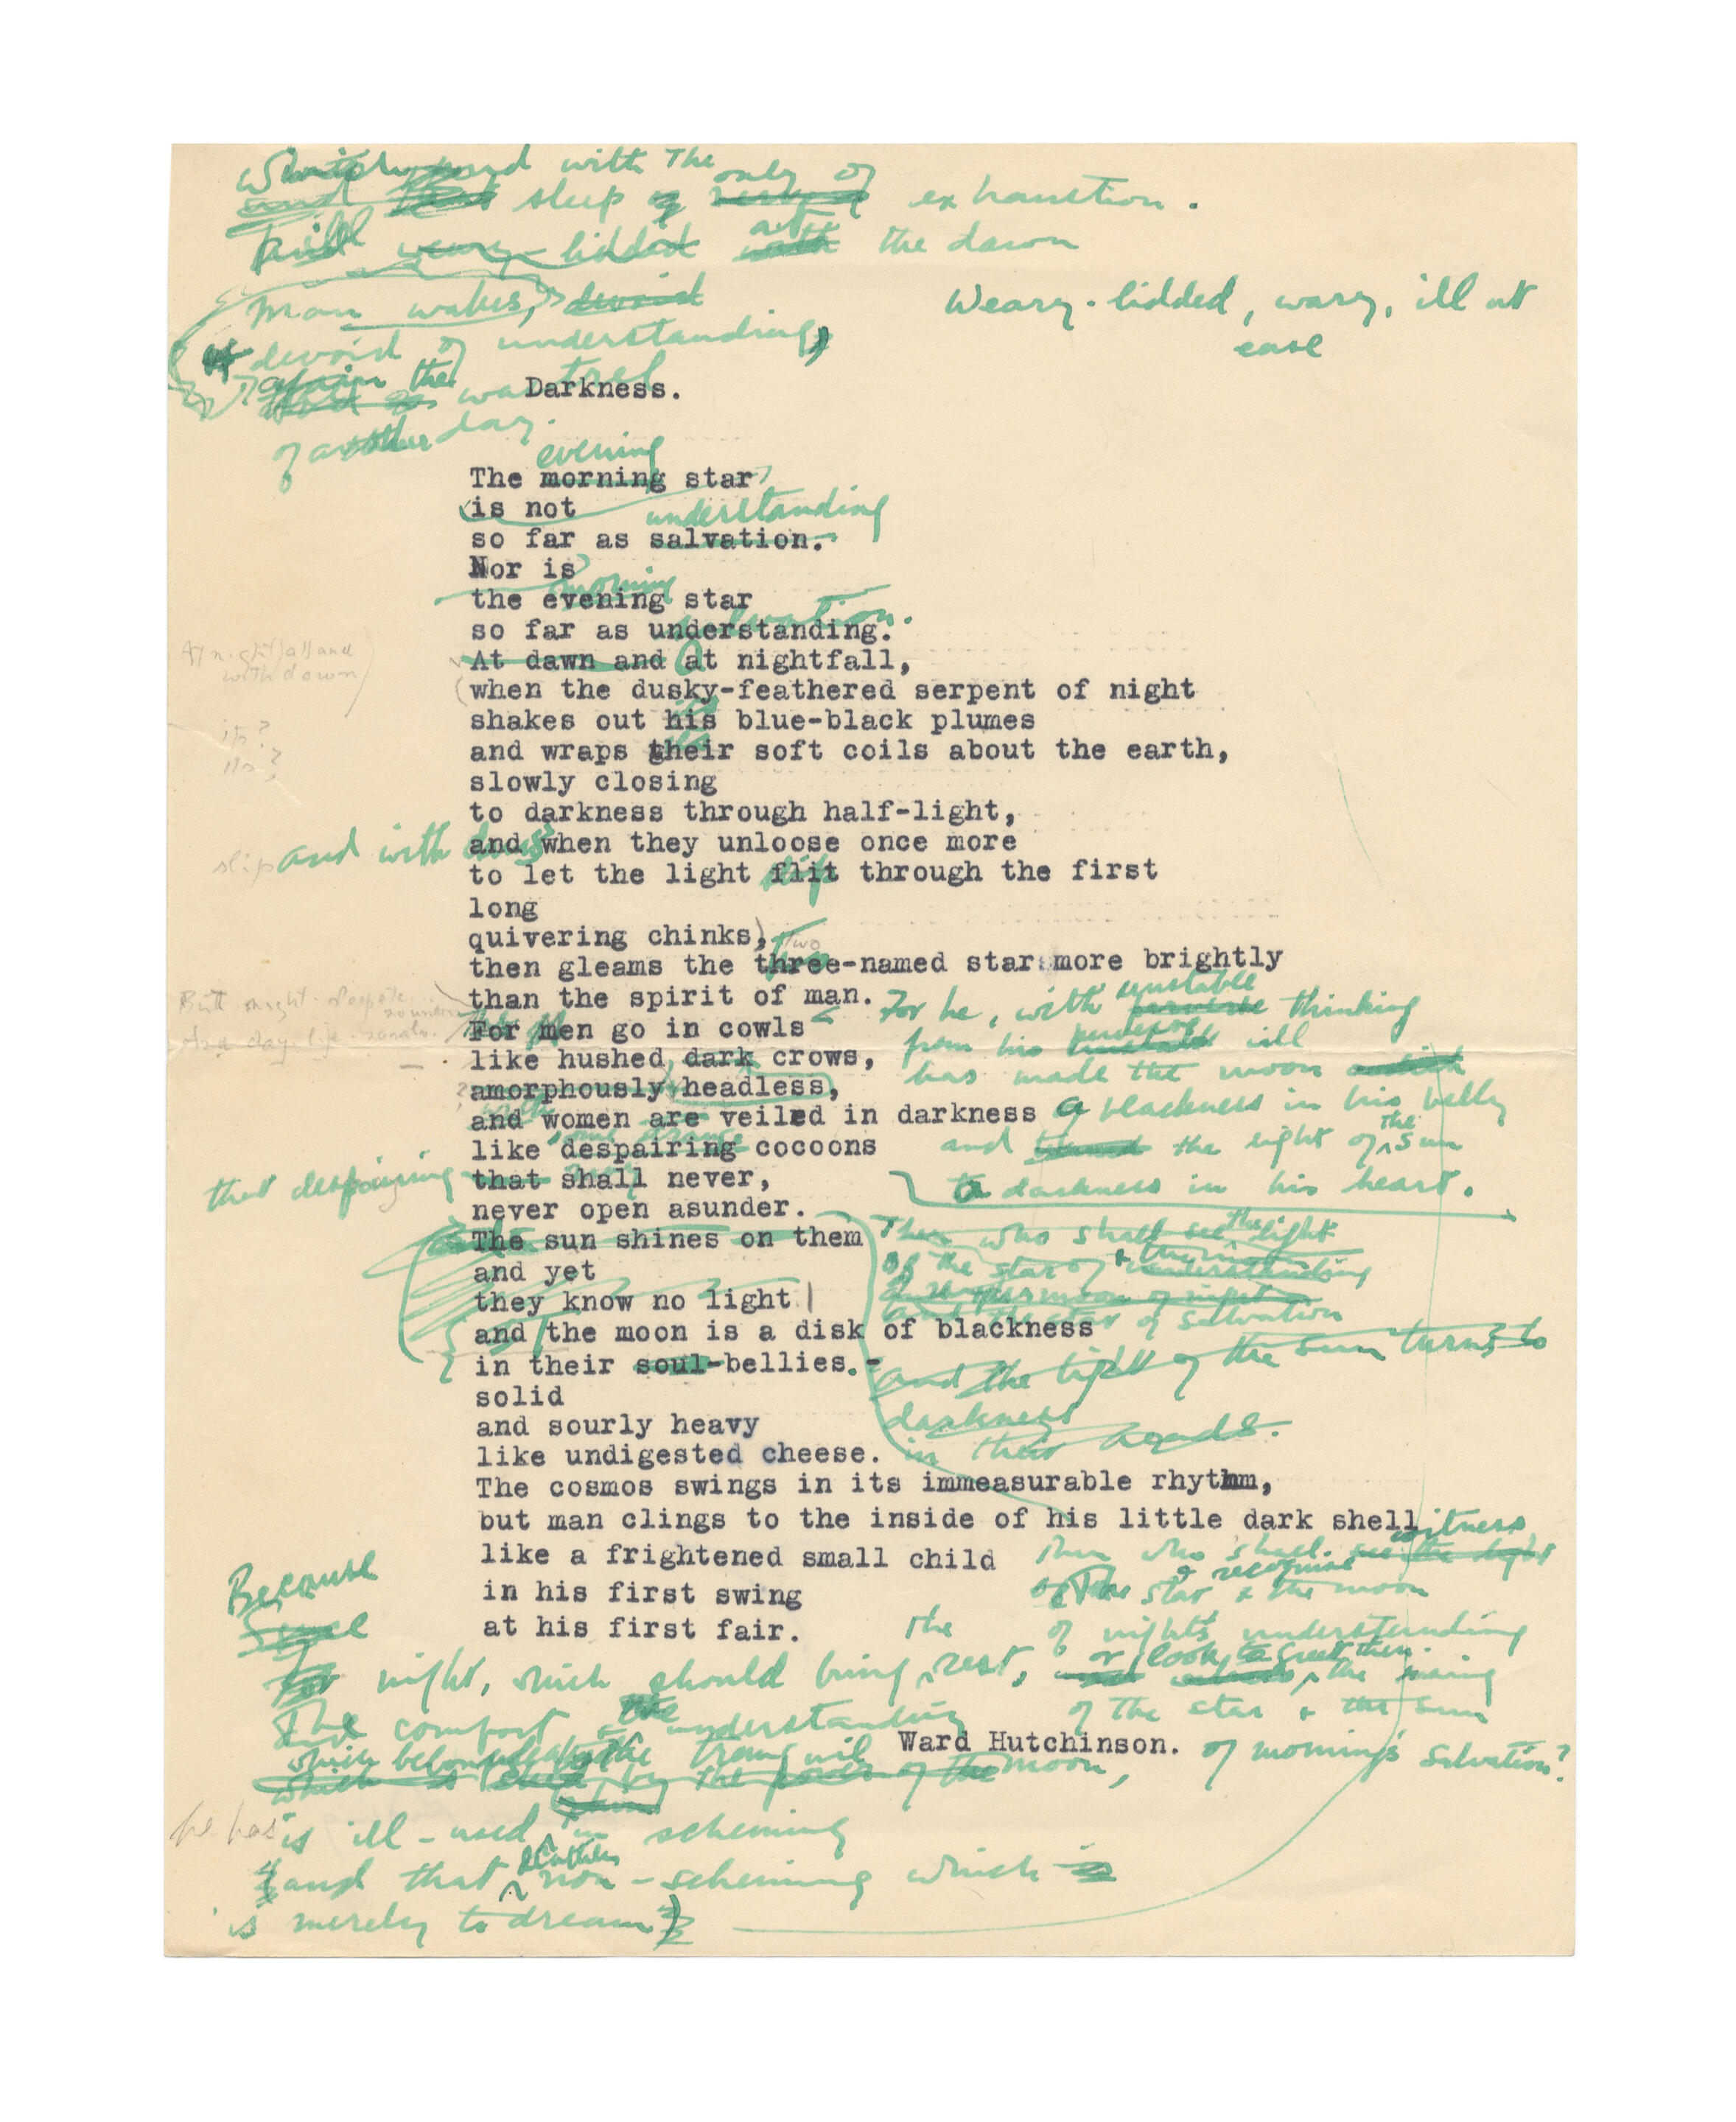 with The only of
sleep exhaustion.
weary-lidded at the dawn
man wakes, devoid
Weary-lidded, wary, ill at
ease
devoid of understanding,
again the wastrel
Darkness.
of another day.
evening
The morning star
is not
understanding
so far as salvation.
Nor is
morning
the evening star
salvation.
so far as understanding.
At nightfall and
with dawn
At dawn and at nightfall,
when the dusky-feathered serpent of night
its
shakes out his blue-black plumes
its?
its?
and wraps their soft coils about the earth,
slowly closing
to darkness through half-light,
slip and with dawn
and when they unloose once more
to let the light flit through the first
slip
long
quivering chinks,
two
then gleams the three-named star more brightly
than the spirit of man.
For he, with unstable perverse thinking
For men go in cowls
from his perverse unstable will
like hushed dark crows,
has made the moon
amorphously headless,
a blackness in his belly
and women are veiled in darkness
and the light of the sun
like despairing cocoons
to darkness in his heart.
that despairing
that shall never,
never open asunder.
Then who shall see the light
The sun shines on them
of the star of understanding
and yet
they know no light
and the star of salvation
and the moon is a disk of blackness
in their soul-bellies.-
and the light of the sun turns to
darkness
in their heads.
solid
and sourly heavy
like undigested cheese.
The cosmos swings in its immeasurable rhythm,
but man clings to the inside of his little dark shell
like a frightened small child
Then who shall witness see the light
of The star & the moon
& recognise
in his first swing
at his first fair.
of night's understanding
Because
Since
For night, which should bring the rest,
or look to greet then the rising
of the star & the sun
of morning's salvation?
The comfort & the understanding
Ward Hutchinson.
which belong to the tranquil moon,
which is by the power of the
he has
is ill-used in scheming
and that non-scheming which is
is merely to dream)